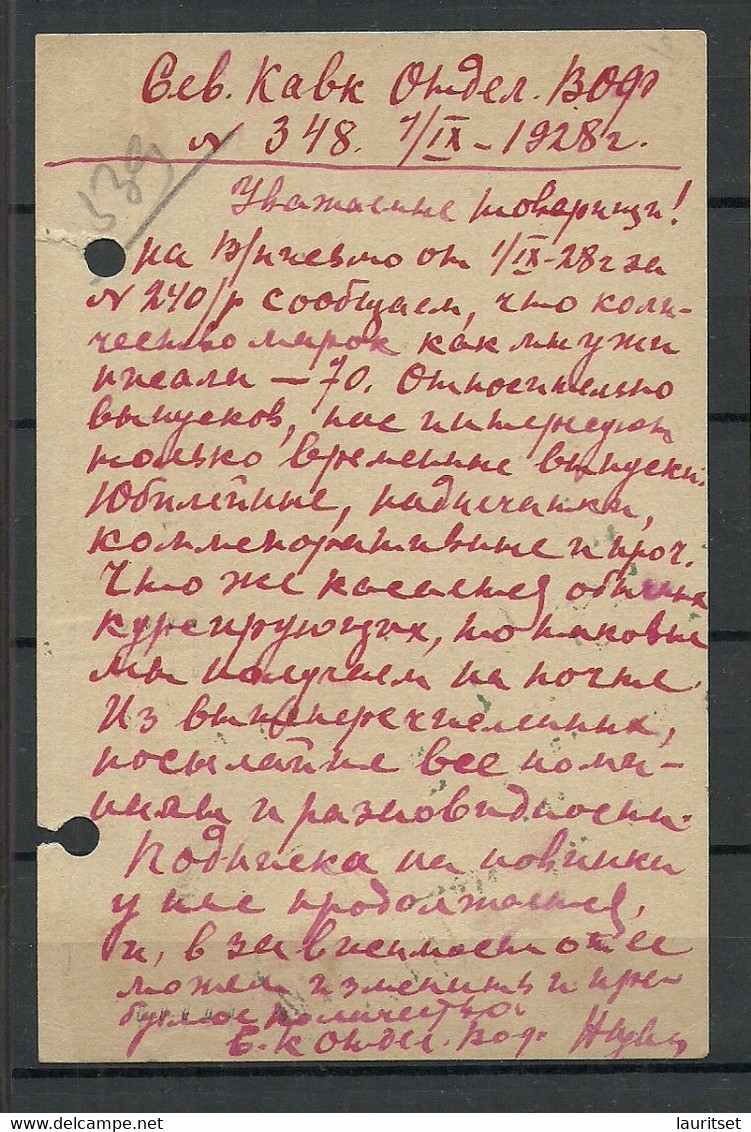 Сев. Кавк Отдел. ВОФ
N 348. 7/IX - 1928 г.
539
Уважаемые товарищи!
на В/письмо от 1/IX-28 г за
N 240/р сообщаем, что коли-
чество марок как мы уже
писали — 70. Относительно
выпусков, нас интересуют
только временные выпуски.
Юбилейные, надпечатки,
коммеморативные и проч.
Что же касается обычных
курсирующих, то таковые
мы получаем на почте.
Из вышеперечисленных,
посылайте все номи-
налы и разновидности.
Подписка на новинки
у нас продолжается,
и, в зависимости от ее
может изменить и тре-
буемое количество.
С. К Отдел. Воф.
lauritset